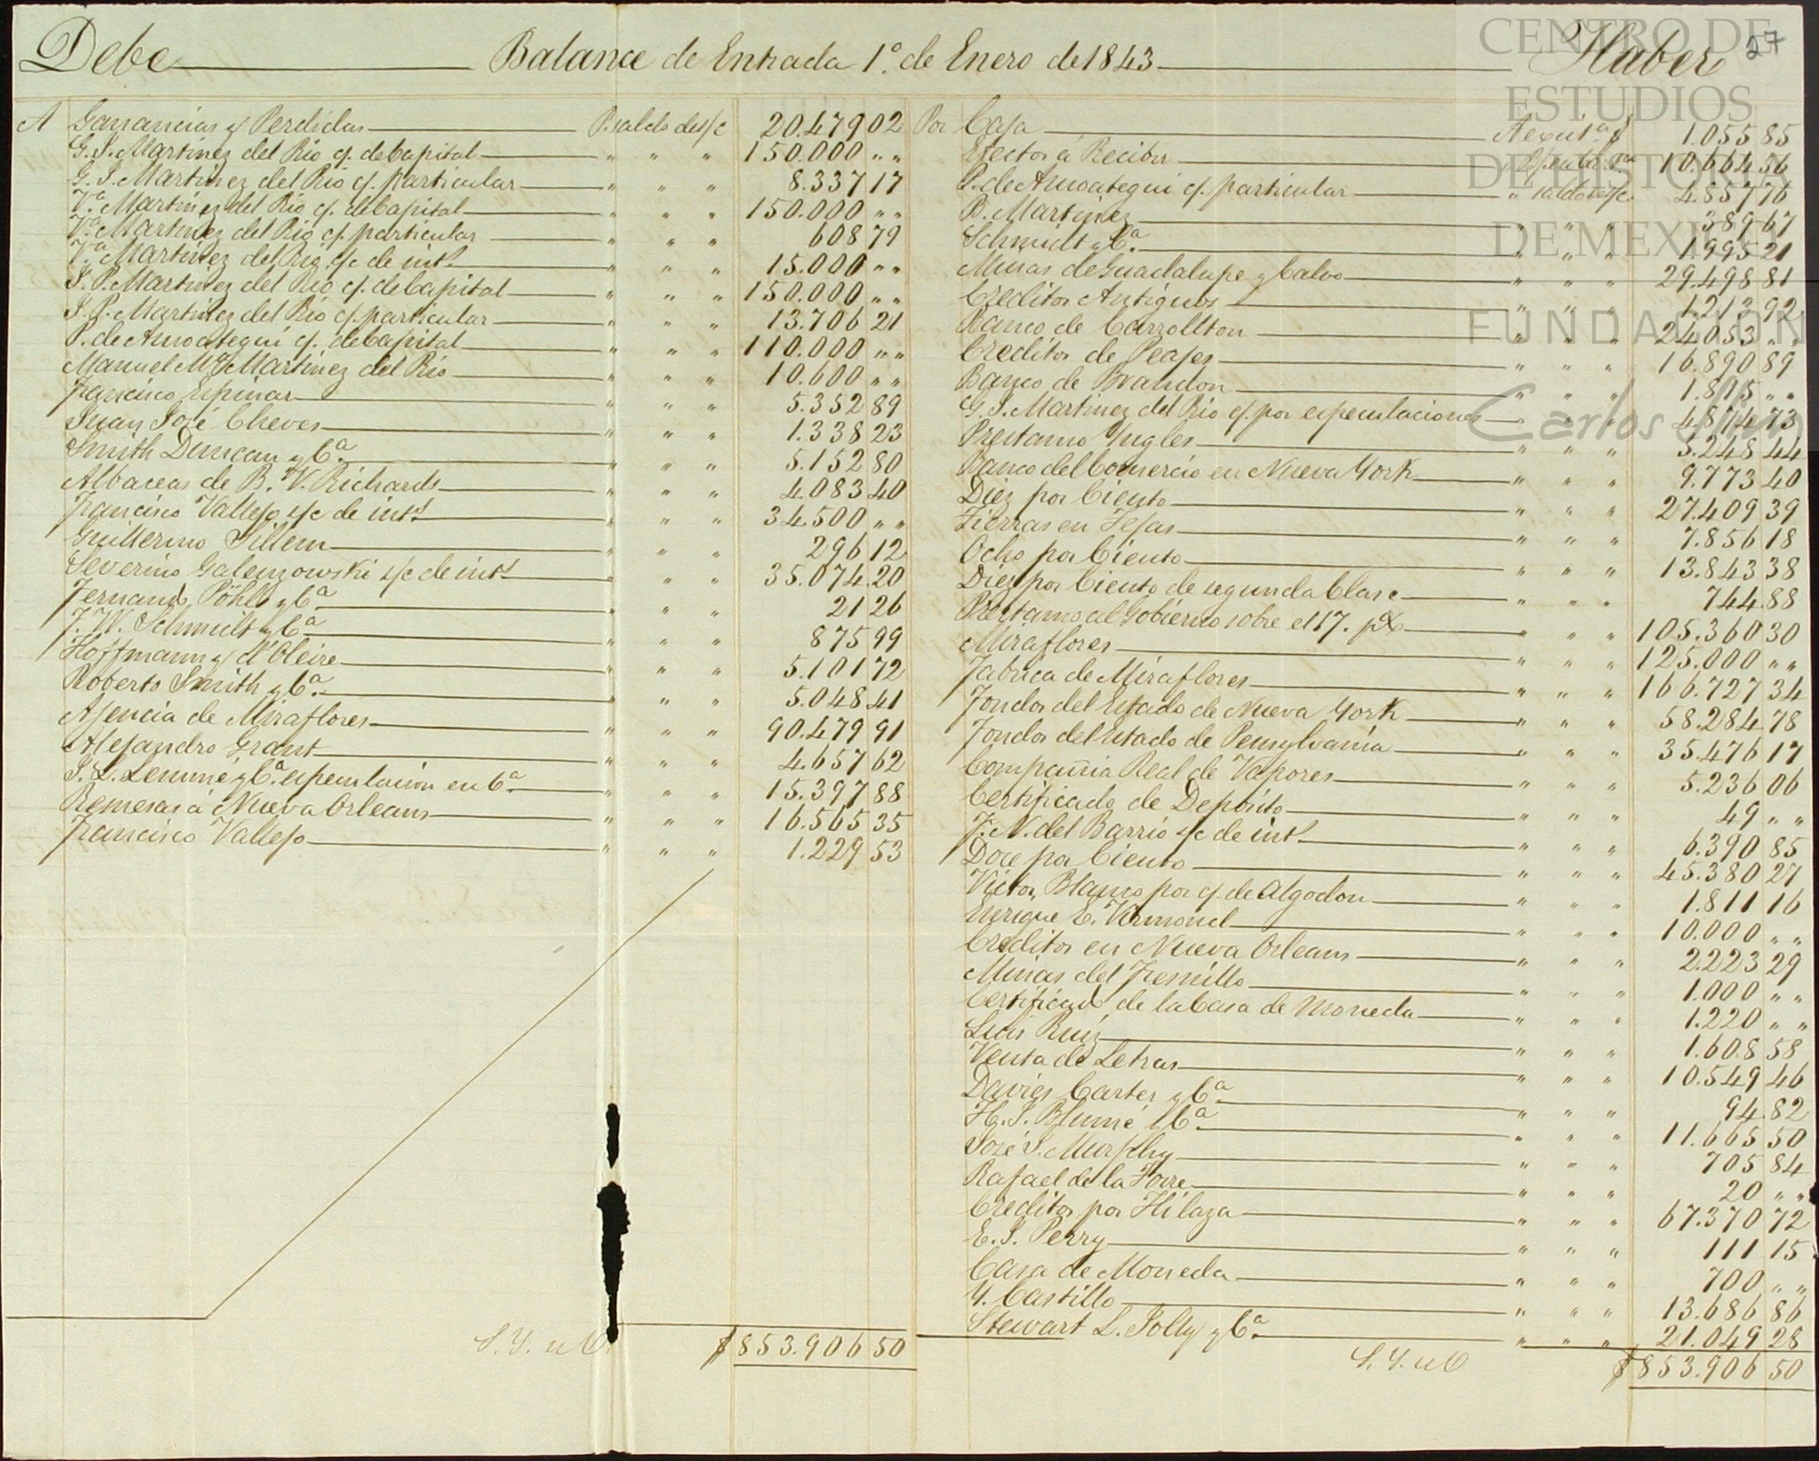 Debe Balance de Entrada 1º de Enero de 1843 Haber 27
A Ganancias y Perdidas P. saldo de s/c 20.479 02
G. J. Martinez del Rio c/. de Capital " " " 150.000 " "
G. J. Martinez del Rio c/. particular " " " 8.337 17
Vª Martinez del Rio c/. de Capital " " " 150.000 " "
Vª Martinez del Rio c/. particular " " " 608 79
Vª Martinez del Rio s/c de intˢ " " " 15.000 " "
J. P. Martinez del Rio c/. de Capital " " " 150.000 " "
J. P. Martinez del Rio c/. particular " " " 13.706 21
P. de Ansoategui c/. de Capital " " " 110.000 " "
Manuel Mª Martinez del Rio " " " 10.600 " "
Francisco Espinar " " " 5.352 89
Juan José Cheves " " " 1.338 23
Smith Duncan y Cª " " " 5.152 80
Albaceas de B. V. Richards " " " 4.083 40
Francisco Vallejo s/c de intˢ " " " 34.500 " "
Guillermo Sillem " " " 296 12
Severino Galenzowski s/c de intˢ " " " 35.074 20
Fernand Pöhls y Cª " " " 21 26
F. W. Schmidt y Cª " " " 875 99
Hoffmann y D'Oleire " " " 5.101 72
Roberto Smith y Cª " " " 5.048 41
Ajencia de Miraflores " " " 90.479 91
Alejandro Grant " " " 4.657 62
S. L. Lemmé y Cª especulacion en Cª " " " 15.397 88
Remesas á Nueva Orleans " " " 16.565 35
Francisco Vallejo " " " 1.229 53
S. Y. u O. $ 853.906 50
Por Caja 1.055 85
Efectos á Recibir 10.664 56
P. de Ansoategui c/. particular " saldo de s/c 4.857 76
B. Martinez " " " 389 67
Schmidt y Cª " " " 1.995 21
Minas de Guadalupe y Calvo " " " 29.498 81
Creditos Antiguos " " " 1.213 92
Banco de Carrollton " " " 24.053 " "
Creditos de Peages " " " 16.890 89
Banco de Brandon " " " 1.815 " "
G. J. Martinez del Rio c/. por especulaciones " " " 4.874 73
Prestamo Yngles " " " 5.248 44
Banco del Comercio en Nueva York " " " 9.773 40
Diez por Ciento " " " 27.409 39
Tierras en Tejas " " " 7.856 18
Ocho por Ciento " " " 13.843 38
Diez por Ciento de segunda Clase " " " 744 88
Prestamo al Gobierno sobre el 17. p% " " " 105.360 30
Miraflores " " " 125.000 " "
Fabrica de Miraflores " " " 166.727 34
Fondos del Estado de Nueva York " " " 58.284 78
Fondos del Estado de Pensylvania " " " 35.476 17
Compañia Real de Vapores " " " 5.236 06
Certificado de Deposito " " " 49 " "
F. N. del Barrio s/c de intˢ " " " 6.390 85
Doce por Ciento " " " 45.380 27
Victor Blanco por c/. de Algodon " " " 1.811 16
Enrique E. Virmond " " " 10.000 " "
Creditos en Nueva Orleans " " " 2.223 29
Minas del Fresnillo " " " 1.000 " "
Certificad de la Casa de Moneda " " " 1.220 " "
Luis Ruiz " " " 1.608 58
Venta de Letras " " " 10.549 46
Davies Carter y Cª " " " 94 82
H. J. Blumé y Cª " " " 11.665 50
José J. Murphy " " " 705 84
Rafael de la Torre " " " 20 " "
Creditos por Hilaza " " " 67.370 72
E. J. Perry " " " 111 15
Casa de Moneda " " " 700 " "
Y. Castillo " " " 13.686 86
Stewart L. Jolly y Cª " " " 21.049 28
S. Y. u O $ 853.906 50
CENTRO DE
ESTUDIOS
DE HISTORIA
DE MEXICO
FUNDACIÓN
Carlos Slim